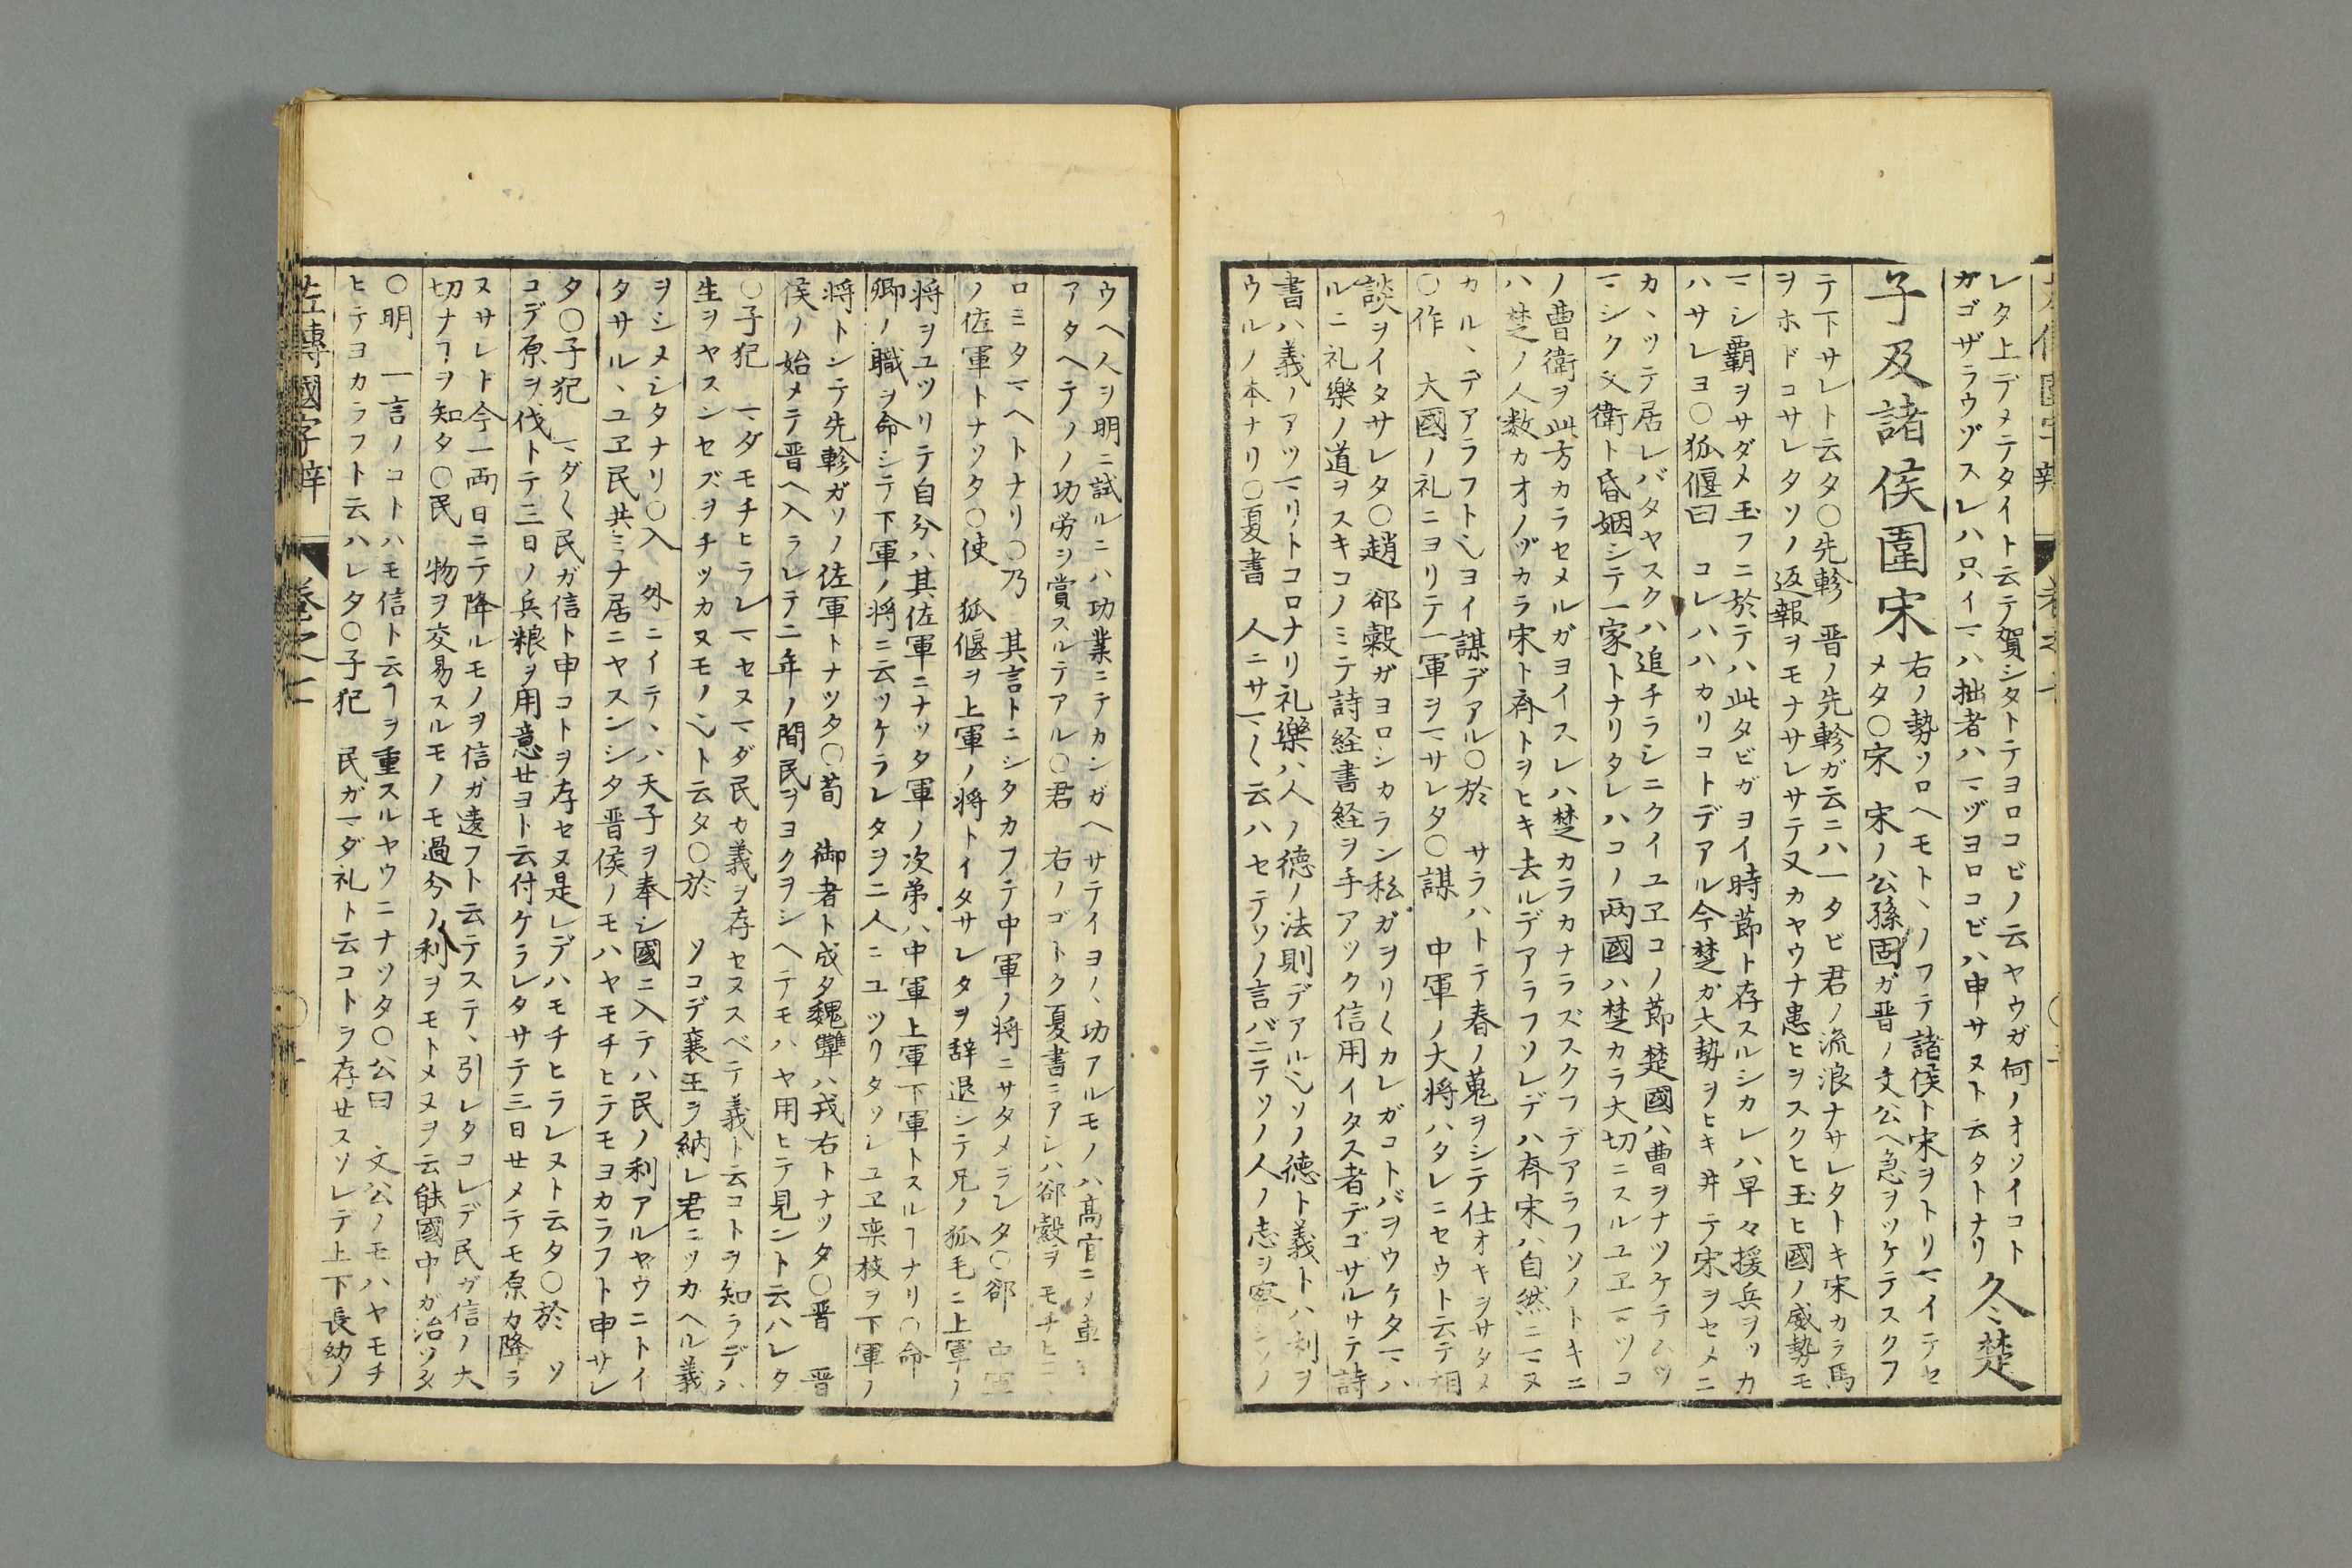 レタ上デメテタイト云テ賀シタトテヨロコビノ云ヤウガ何ノオソイコト
ガゴザラウゾスレハ只イマハ拙者ハマヅヨロコビハ申サヌト云タトナリ
冬楚
子及諸侯圍宋
右ノ勢ソロヘモトヽノフテ諸侯ト宋ヲトリマイテセ
メタ〇宋 宋ノ公孫固ガ晋ノ文公ヘ急ヲツケテスクフ
テ下サレト云タ〇先軫 晋ノ先軫ガ云ニハ一タビ君ノ流浪ナサレタトキ宋カラ馬
ヲホドコサレタソノ返報ヲモナサレサテ又カヤウナ患ヒヲスクヒ玉ヒ國ノ威勢モ
マシ覇ヲサダメ玉フニ於テハ此タビガヨイ時節ト存スルシカレハ早々援兵ヲツカ
ハサレヨ〇狐偃曰 コレハハカリコトデアル今楚ガ大勢ヲヒキ井テ宋ヲセメニ
カヽツテ居レバタヤスクハ追チラシニクイユヱコノ節楚國ハ曹ヲナツケテムツ
マシク又衛ト昏姻シテ一家トナリタレハコノ両國ハ楚カラ大切ニスルユヱマツコ
ノ曹衛ヲ此方カラセメルガヨイスレハ楚カラカナラズスクフデアラフソノトキニ
ハ楚ノ人数カオノヅカラ宋ト斉トヲヒキ去ルデアラフソレデハ斉宋ハ自然ニマヌ
カルヽデアラフト也ヨイ謀デアル〇於 サラハトテ春ノ蒐ヲシテ仕オキヲサタメ
〇作 大國ノ礼ニヨリテ一軍ヲマサレタ〇謀 中軍ノ大将ハタレニセウト云テ相
談ヲイタサレタ〇趙 郤縠ガヨロシカラン私ガヲリ〱カレガコトバヲウケタマハ
ルニ礼樂ノ道ヲスキコノミテ詩経書経ヲ手アツク信用イタス者デゴザルサテ詩
書ハ義ノアツマリトコロナリ礼樂ハ人ノ徳ノ法則デアル也ソノ徳ト義トハ利ヲ
ウルノ本ナリ〇夏書 人ニサマ〱云ハセテソノ言バニテソノ人ノ志ヲ察シソノ
ウヘ人ヲ明ニ試ルニハ功業ニテカンガヘサテイヨヽ功アルモノハ高官ニノ車
アタヘテソノ功労ヲ賞スルテアル〇君 右ノゴトク夏書ニアレハ郤縠ヲモチヒ
ロミタマヘトナリ〇乃 其言トニシタカフテ中軍ノ将ニサタメラレタ〇郤 中軍
ノ佐軍トナツタ〇使 狐偃ヲ上軍ノ将トイタサレタヲ辞退シテ兄ノ狐毛ニ上軍ノ
将ヲユツリテ自分ハ其佐軍ニナツタ軍ノ次弟ハ中軍上軍下軍トスルヿナリ〇命
卿ノ職ヲ命シテ下軍ノ将ニ云ツケラレタヲ二人ニユツリタソレユヱ栾枝ヲ下軍ノ
将トシテ先軫ガソノ佐軍トナツタ〇荀 御者ト成タ魏犨ハ戎右トナツタ〇晋 晋
侯ノ始メテ晋ヘ入ラレテ二年ノ間民ヲヨクヲシヘテモハヤ用ヒテ見ント云ハレタ
〇子犯 マダモチヒラレマセヌマダ民カ義ヲ存セヌスベテ義ト云コトヲ知ラデハ
生ヲヤスンセズヲチツカヌモノ也ト云タ〇於 ソコデ襄王ヲ納レ君ニツカヘル義
ヲシメシタナリ〇入 外ニイテヽハ天子ヲ奉シ國ニ入テハ民ノ利アルヤウニトイ
タサルヽユヱ民共ミナ居ニヤスンシタ晋侯ノモハヤモチヒテモヨカラフト申サレ
タ〇子犯 マダ〱民ガ信ト申コトヲ存セヌ是レデハモチヒラレヌト云タ〇於 ソ
コデ原ヲ伐トテ三日ノ兵粮ヲ用意セヨト云付ケラレタサテ三日セメテモ原カ降ラ
ヌサレト今一両日ニテ降ルモノヲ信ガ違フト云テステヽ引レタコレデ民ガ信ノ大
切ナヿヲ知タ〇民 物ヲ交易スルモノモ過分ノ利ヲモトメヌヲ云能國中ガ治ツタ
〇明 一言ノコトハモ信ト云ヿヲ重スルヤウニナツタ〇公曰 文公ノモハヤモチ
ヒテヨカラフト云ハレタ〇子犯 民ガマダ礼ト云コトヲ存セスソレデ上下長幼ノ
左傳國字辯 巻之七